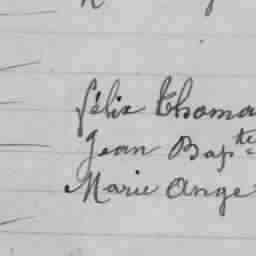 félix Thoma
Jean Bapte
Marie Ange